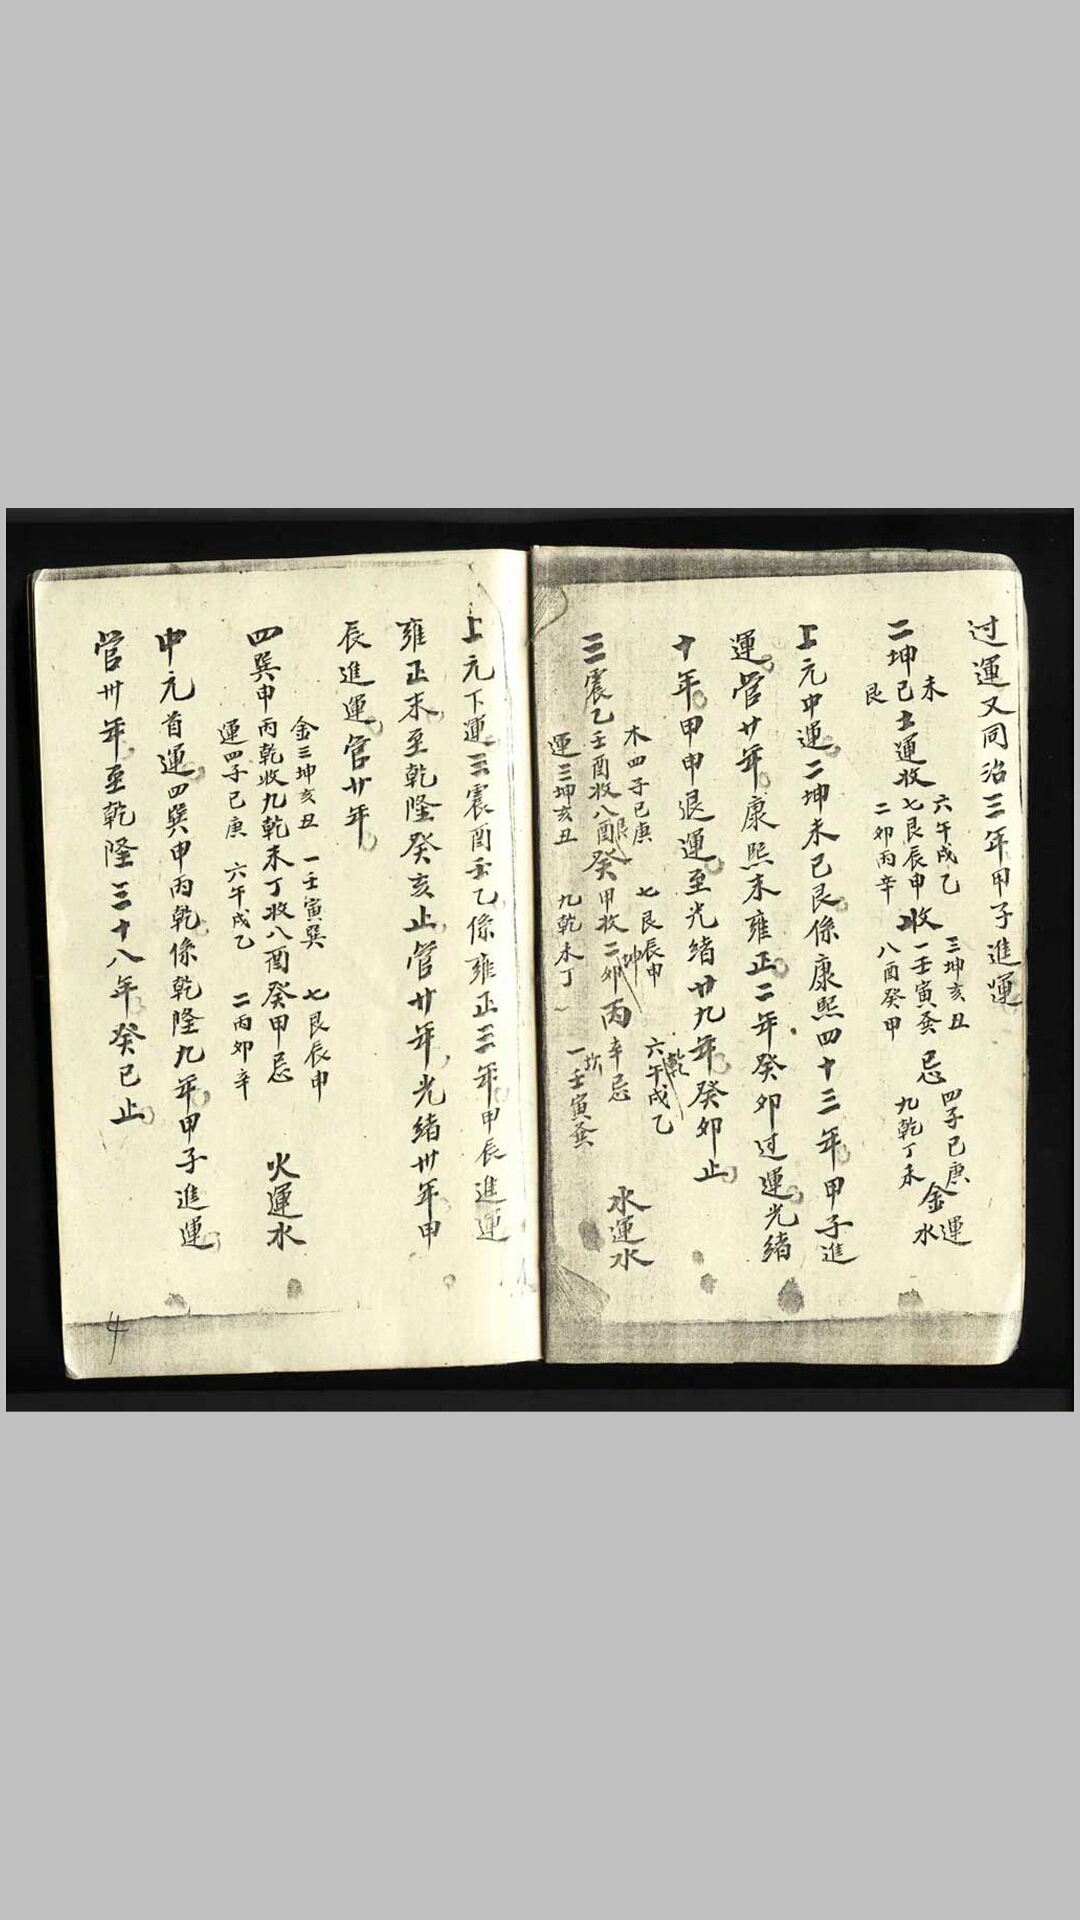 过運又同治三年甲子進運
未
二坤巳土運收
艮
六午戌乙
七艮辰申收
二卯丙辛
三坤亥丑
一壬寅巽忌
八酉癸甲
四子巳庚
九乾丁未
金運
水
上元中運二坤未巳艮係康熙四十三年甲子進
運管廿年康熙末雍正二年癸卯过運光緒
十年甲申退運至光緒廿九年癸卯止
木四子巳庚 七艮辰申 六午戌乙
乾
三震乙壬酉收八酉癸甲收二卯丙辛忌
艮
坤
坎
運三坤亥丑 九乾未丁 一壬寅巽
水運水
上元下運三震酉壬乙係雍正三年甲辰進運
雍正末至乾隆癸亥止管廿年光緒卅年甲
辰進運管廿年
金三坤亥丑 一壬寅巽 七艮辰申
四巽申丙乾收九乾未丁收八酉癸甲忌
運四子巳庚 六午戌乙 二丙卯辛
火運水
中元首運四巽申丙乾係乾隆九年甲子進運
管卅年至乾隆三十八年癸巳止
4